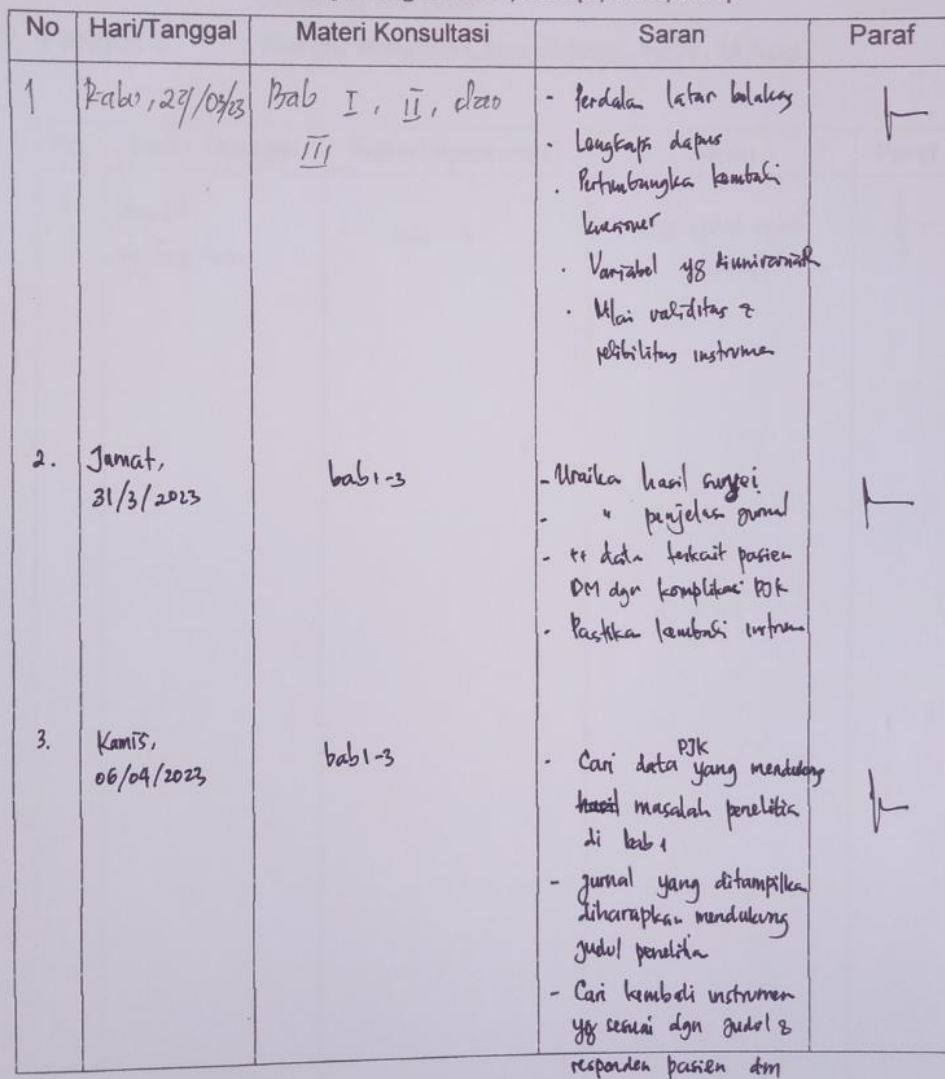 No Hari/Tanggal Materi Konsultasi Saran Paraf
1 Rabu, 29/03/23 Bab I, II, dan
III
- Perdala latar belakag
- Lengkapi dapus
. Pertimbangka kembali
kuesioner
. Variabel yg
. Nilai validitas &
relibilitas instrumen
2. Jumat,
31/3/2023
bab 1-3
- Uraika hasil survei
- " penjelas jurnal
- ++ data terkait pasien
DM dgn komplikasi PJK
- Pastika kembali instrum
3. Kamis,
06/04/2023
bab 1-3
PJK
- Cari data yang mendukung
hasil masalah penelitia
di bab 1
- jurnal yang ditampilka
diharapkan mendukung
judul penelitia
- Cari kembali instrumen
yg sesuai dgn judul &
responden pasien dm